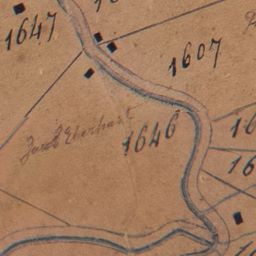 1647
1607
Jacob Eberhart
1646